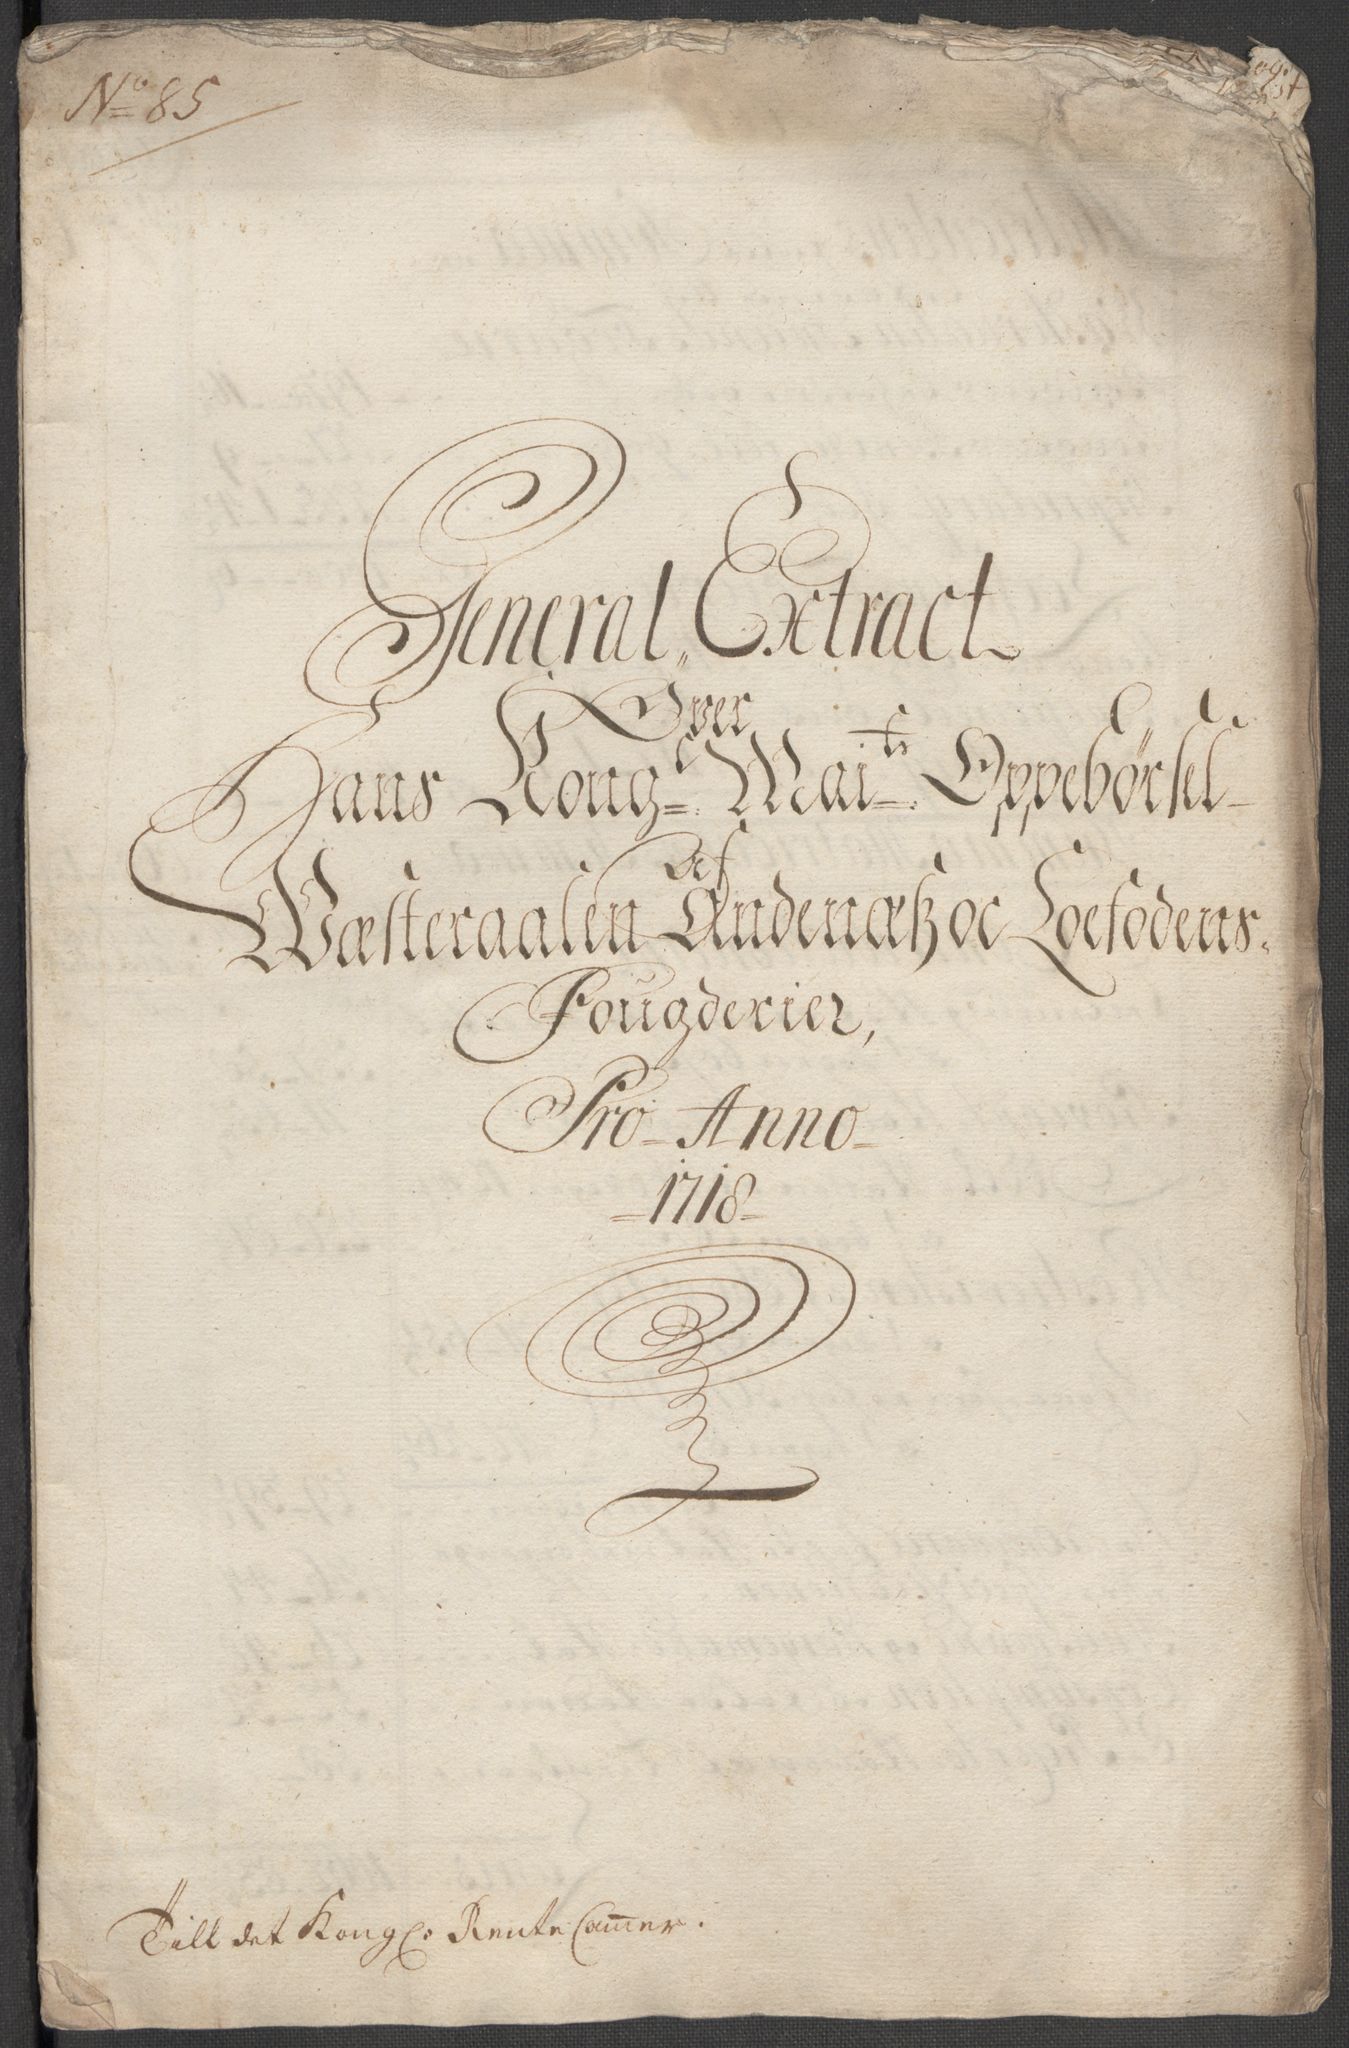 No 85
General Extract
Over
Hans Kongl. Maits. Oppebørsel
Af
Wæsteraalen Andenæs oc Loefodens
Fougderier,
Pro Anno
1718
Till det Kongl. Rente Cammer.